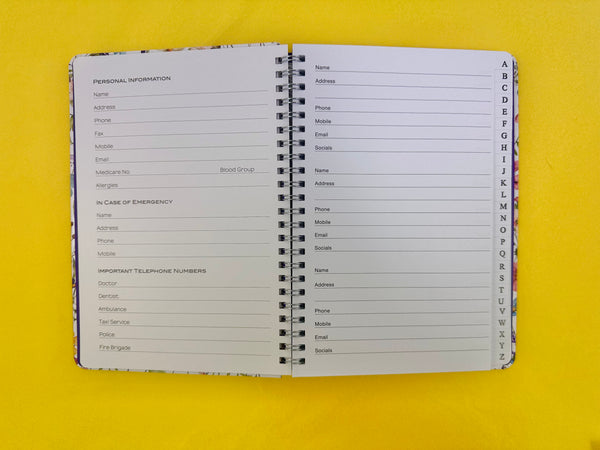 PERSONAL INFORMATION
Name
Address
Phone
Fax
Mobile
Email
Medicare No. Blood Group
Allergies
IN CASE OF EMERGENCY
Name
Address
Phone
Mobile
IMPORTANT TELEPHONE NUMBERS
Doctor
Dentist
Ambulance
Taxi Service
Police
Fire Brigade
Name
Address
Phone
Mobile
Email
Socials
Name
Address
Phone
Mobile
Email
Socials
Name
Address
Phone
Mobile
Email
Socials
A
B
C
D
E
F
G
H
I
J
K
L
M
N
O
P
Q
R
S
T
U
V
W
X
Y
Z